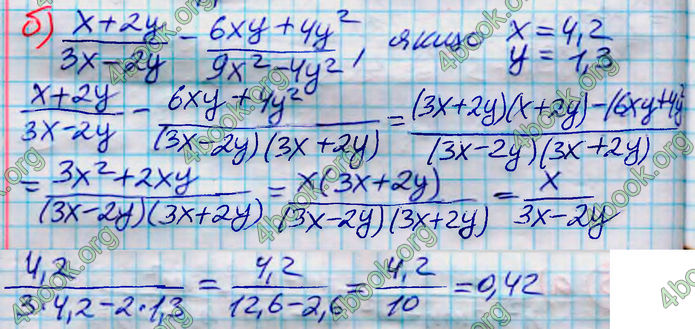 б) (x+2y)/(3x-2y) - (6xy+4y²)/(9x²-4y²), якщо x=4,2 y=1,3
(x+2y)/(3x-2y) - (6xy+4y²)/((3x-2y)(3x+2y)) = ((3x+2y)(x+2y)-(6xy+4y²)/((3x-2y)(3x+2y))
= (3x²+2xy)/((3x-2y)(3x+2y)) = (x(3x+2y))/((3x-2y)(3x+2y)) = x/(3x-2y)
4,2/(3·4,2-2·1,3) = 4,2/(12,6-2,6) = 4,2/10 = 0,42
4book.org
4book.org
4book.org
4book.org
4book.org
4book.org